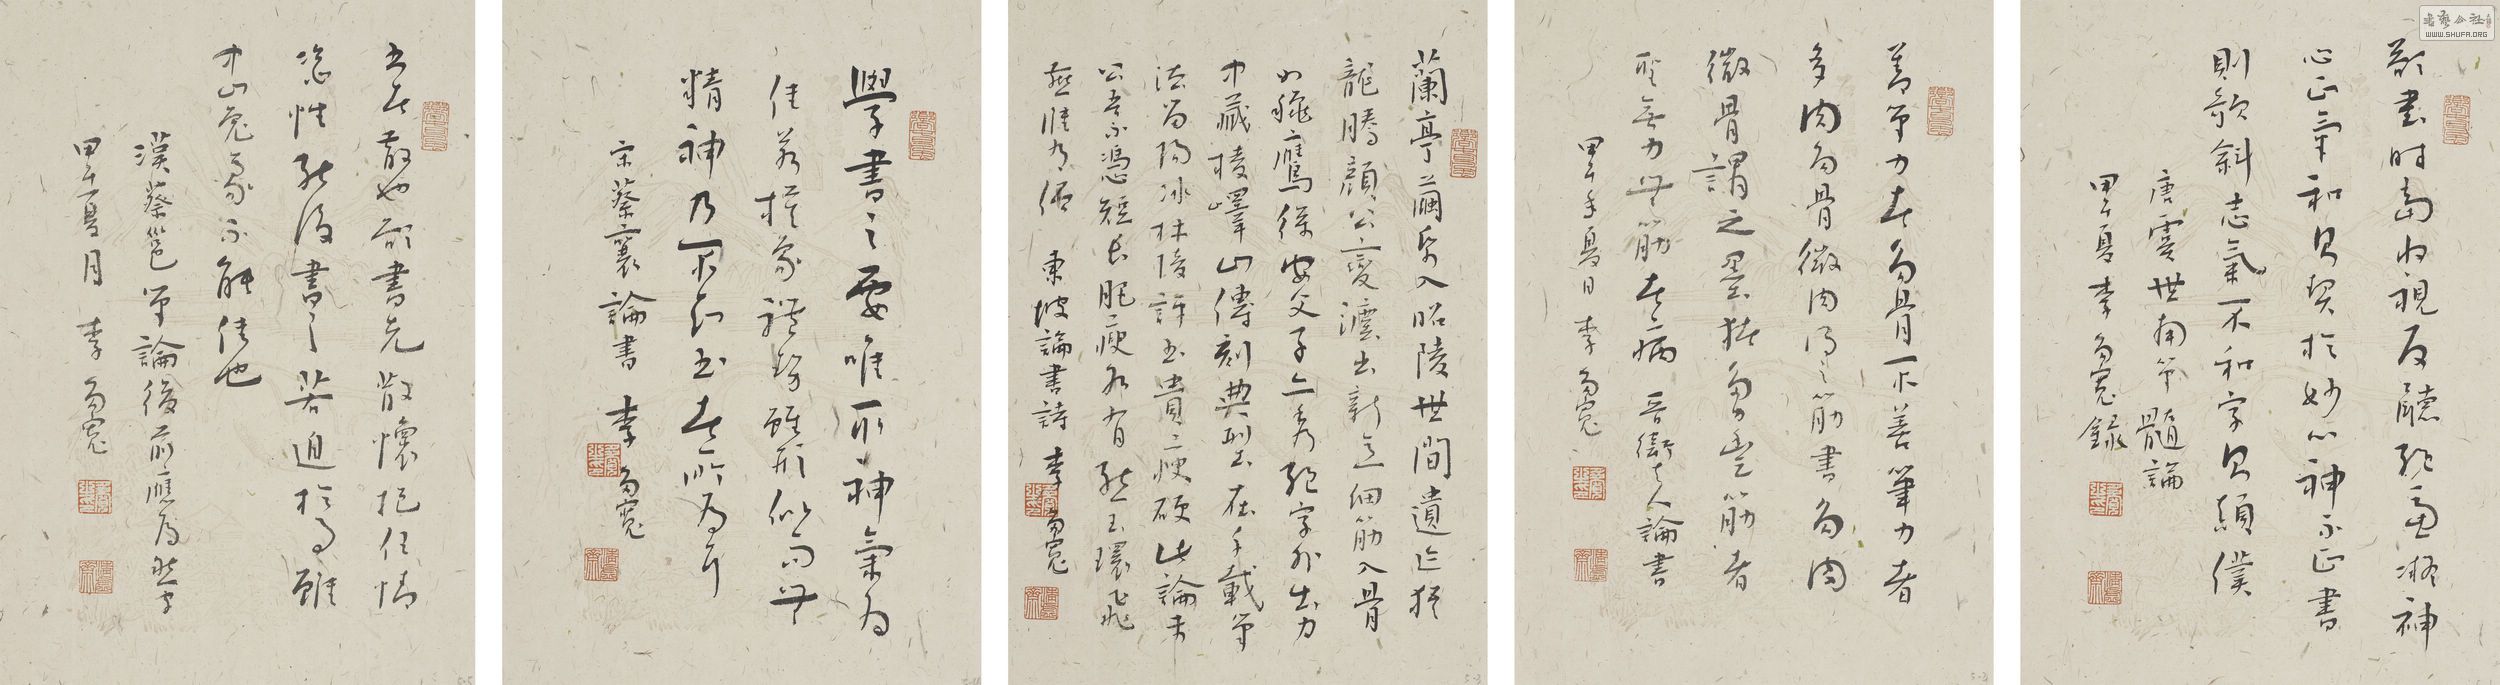 欲書時當收視反聽絶慮凝神
心正氣和則契於妙心神不正書
則欹斜志氣不和字則顛仆
唐虞世南筆髓論
甲午夏李多寬錄
善筆力者多骨不善筆力者
多肉多骨微肉謂之筋書多肉
微骨謂之墨猪多力豐筋者
聖無力無筋者病 晋衛夫人論書
甲午夏日李多寬
蘭亭繭紙入昭陵世間遺迹猶
龍騰顔公變法出新意細筋入骨
如秋鷹徐家父子亦秀絶字外出力
中藏棱嶧山傳刻典型在千載筆
法留陽冰杜陵評書貴瘦硬此論未
公吾不憑短長肥瘦各有態玉環飛
燕誰敢憎 東坡論書詩 李多寬
學書之要唯取神氣爲
佳若模象體勢雖形似而無
精神乃不知書者所爲耳
宋蔡襄論書 李多寬
書者散也欲書先散懷抱任情
恣性然後書之若迫於事雖
中山兔毫不能佳也
漢蔡邕筆論後前應爲然字
甲午夏月 李多寬
書藝公社
WWW.SHUFA.ORG